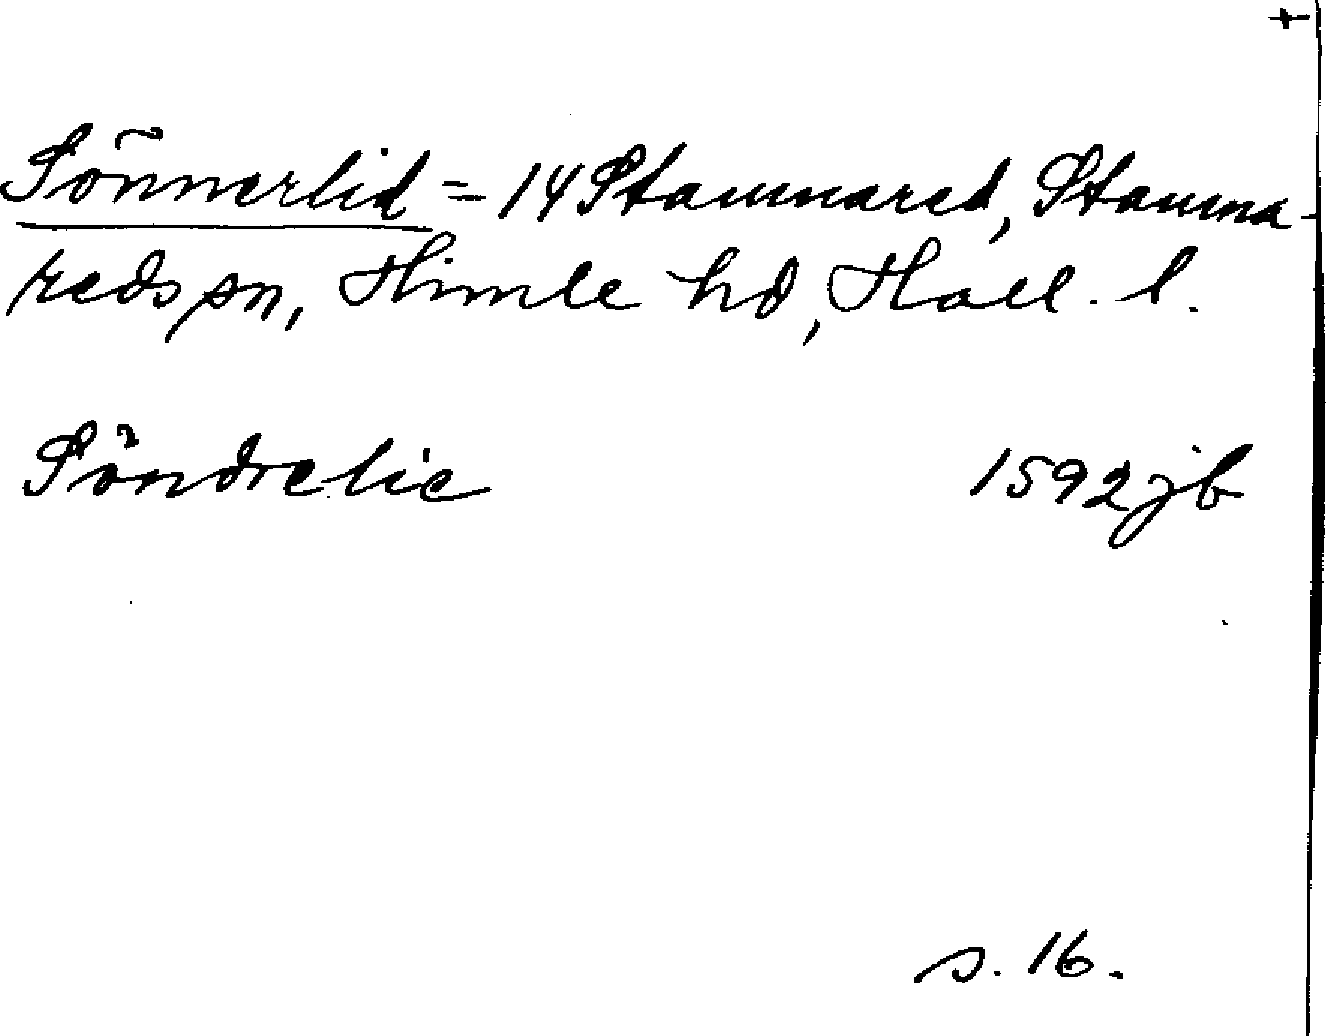 +
Sönnerlid = 14 Stamnared, Stamna-
reds sn, Himle hd, Hall. l.
Söndrelie 1592 jb
s. 16.